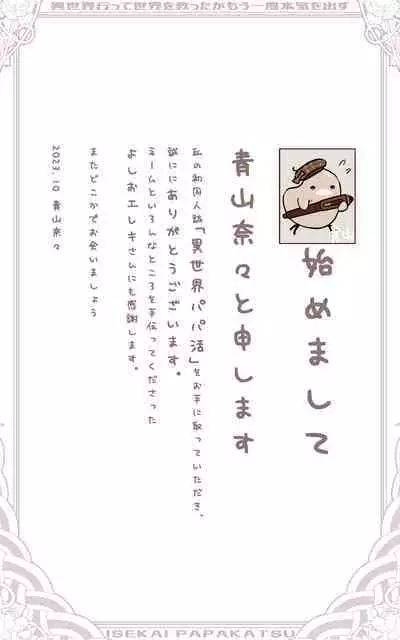 異世界行って世界を救ったがもう一度本気を出す
始めまして
青山奈々と申します
丘の初同人誌「異世界パパ活」をお手に取っていただき、
誠ににありがとうございます。
ミームといろんなところを手伝ってくださった
よしおエレキさんにも感謝します。
またどこかでお会いましょう
2023.10 青山奈々
ISEKAI PAPAKATSU